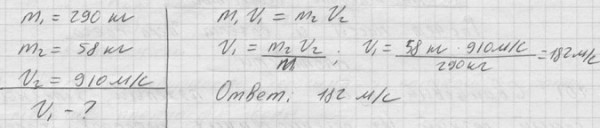 m₁ = 290 кг
m₂ = 58 кг
V₂ = 910 м/с
V₁ - ?
m₁ V₁ = m₂ V₂
V₁ = m₂ V₂ / m ; V₁ = 58 кг · 910 м/с / 290 кг = 182 м/с
Ответ: 182 м/с